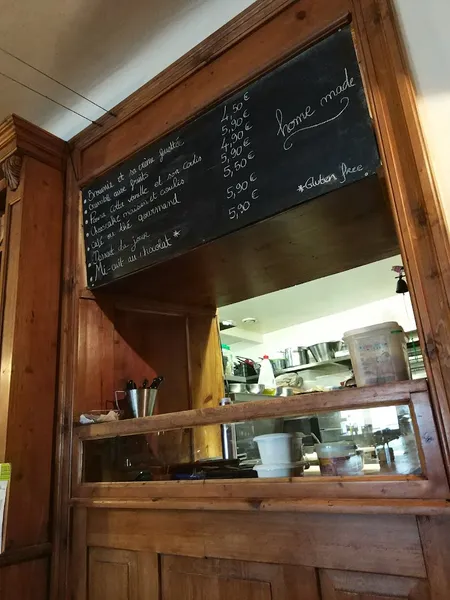 • Brownie et sa crème fouettée 4,50 €
• Crumble aux fruits 5,90 €
• Panna cotta vanille et son coulis 4,90 €
• Cheesecake maison et coulis 5,90 €
• Café ou thé gourmand 5,50 €
• Dessert du jour 5,90 €
• Mi-cuit au chocolat * 5,90 €
home made
*Gluten free.